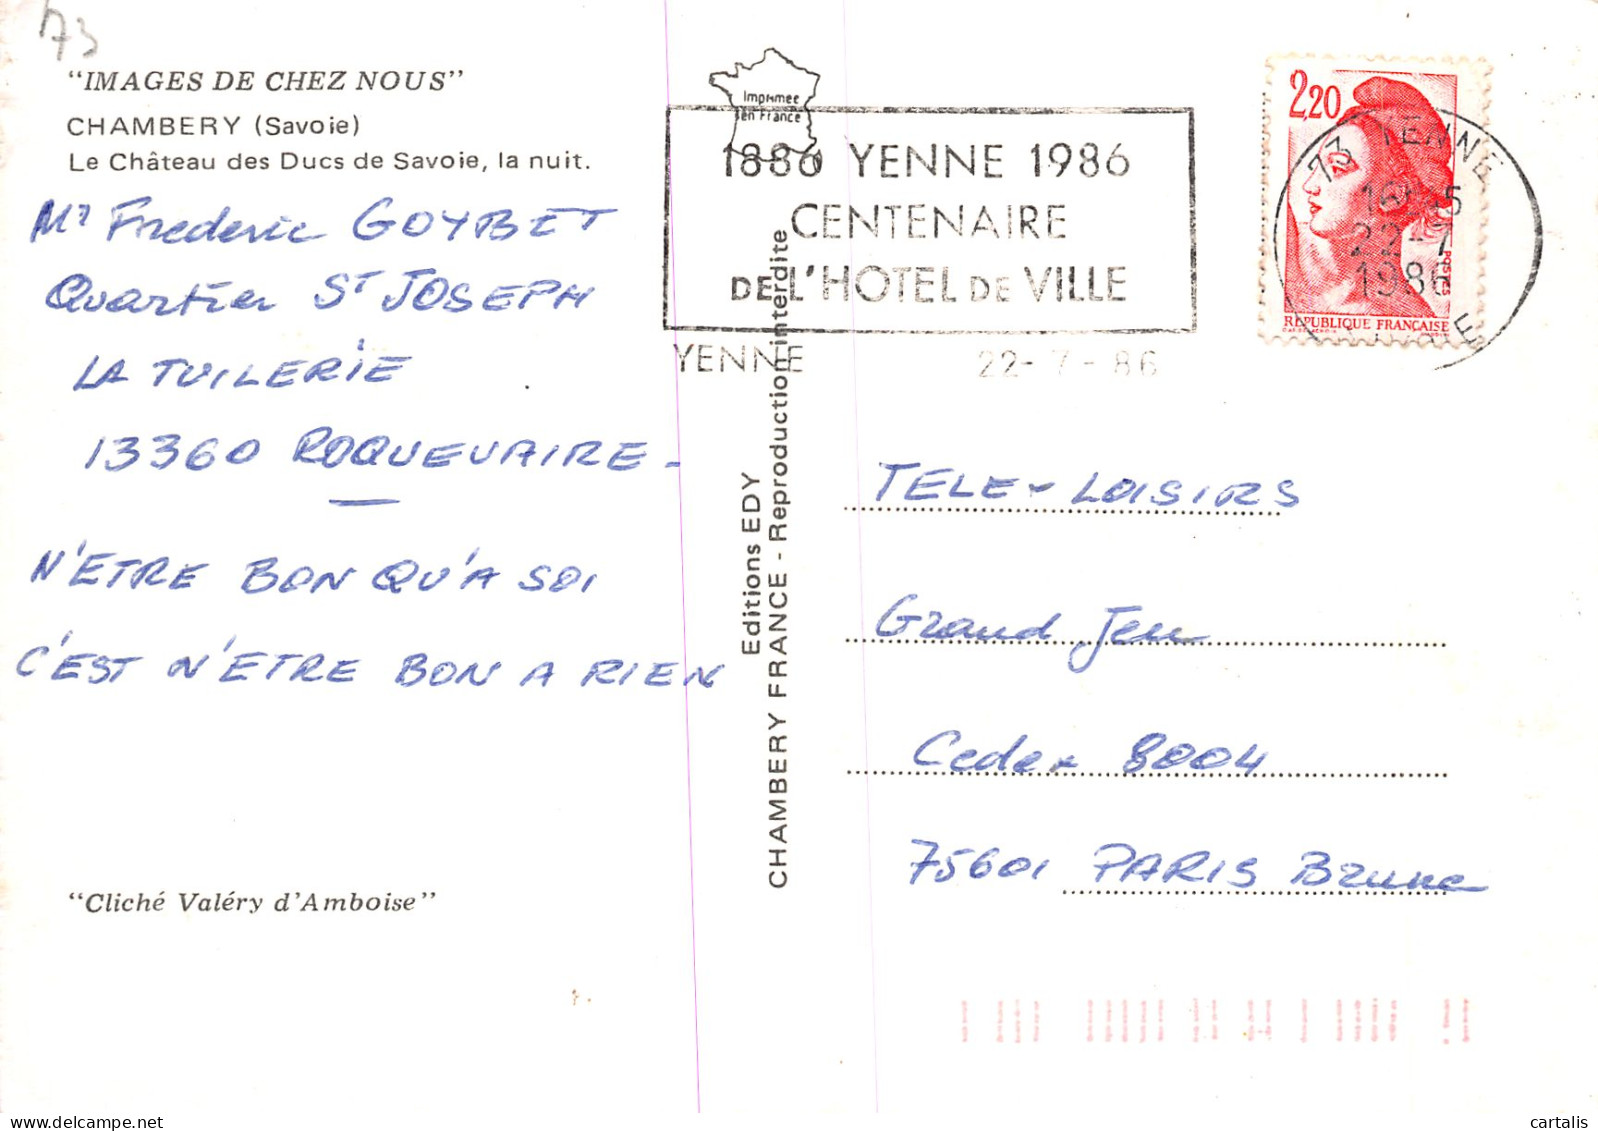 73
"IMAGES DE CHEZ NOUS"
CHAMBERY (Savoie)
Le Château des Ducs de Savoie, la nuit.
Mr Frederic GOYBET
Quartier ST JOSEPH
LA TUILERIE
13360 ROQUEVAIRE -
N'ETRE BON QU'A SOI
C'EST N'ETRE BON A RIEN
"Cliché Valéry d'Amboise"
Editions EDY
CHAMBERY FRANCE - Reproduction interdite
Imprimée
en France
1886 YENNE 1986
CENTENAIRE
DE L'HOTEL DE VILLE
YENNE 22-7-86
2,20
POSTES
REPUBLIQUE FRANÇAISE
73 YENNE
22-7
1986
TELE-LOISIRS
Grand Jeu
Cedex 8004
75601 PARIS Brune
cartalis